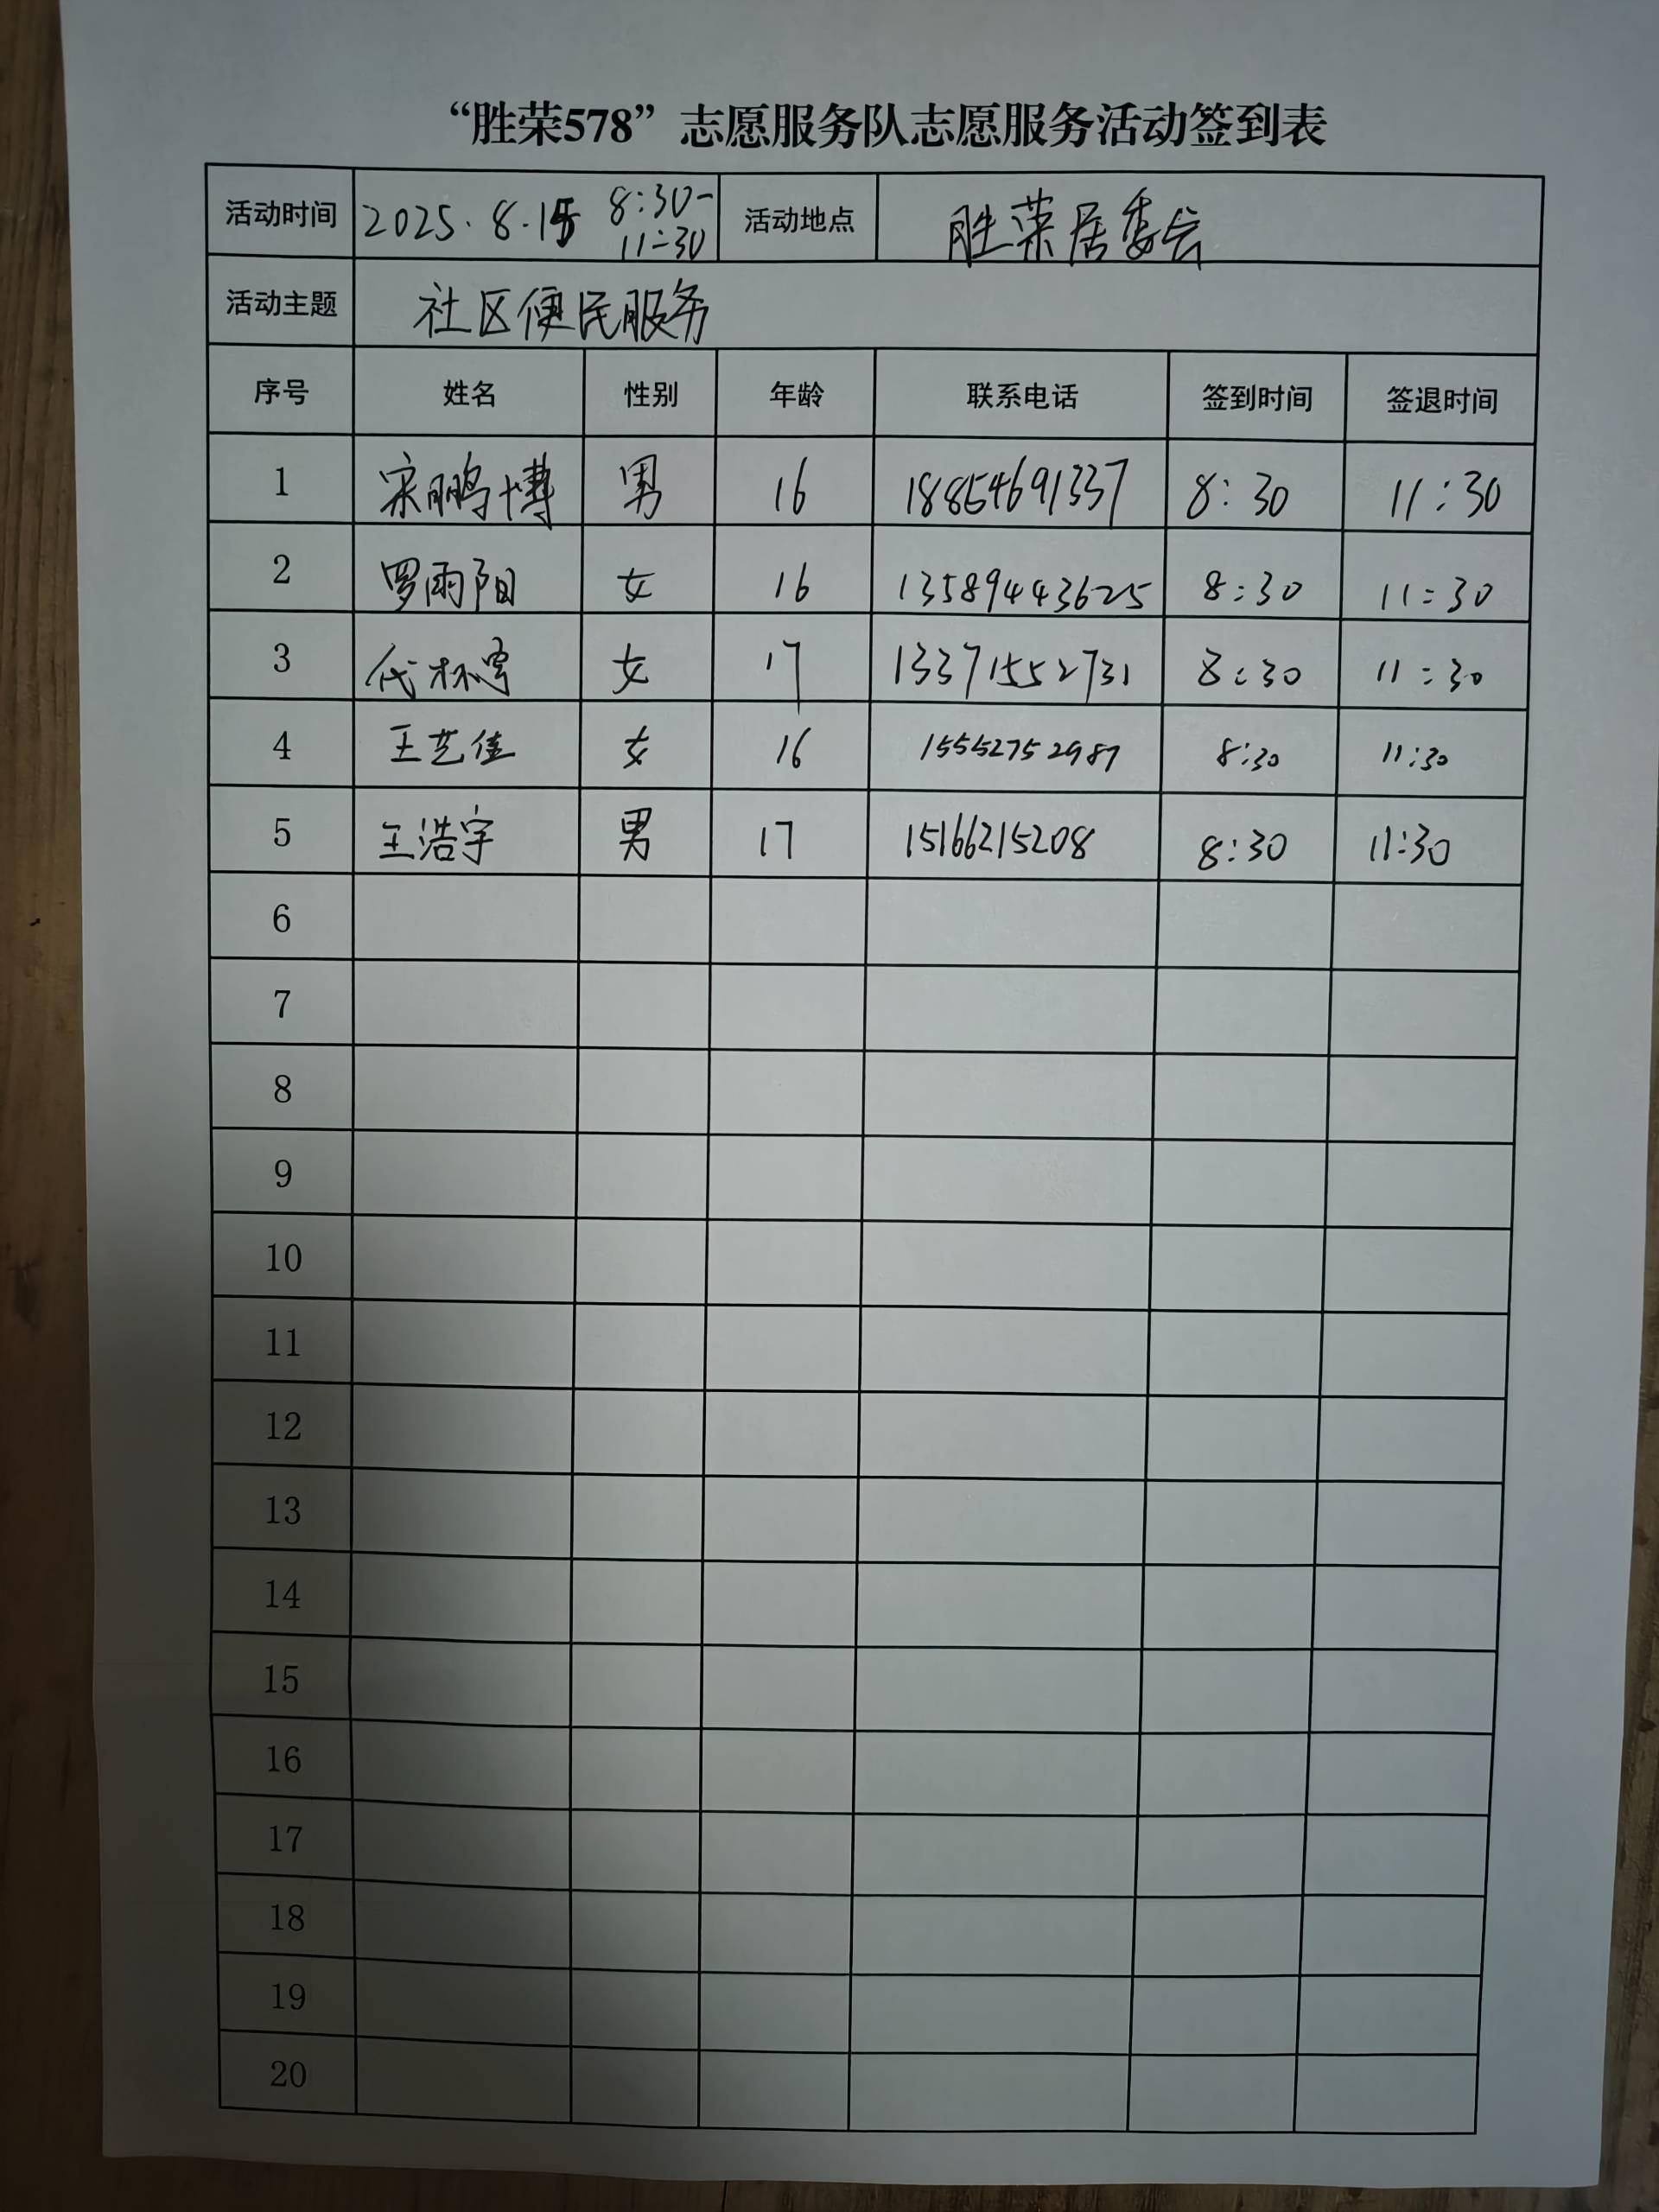 “胜荣578”志愿服务队志愿服务活动签到表
活动时间 2025.8.15 8:30-11:30 活动地点 胜荣居委会
活动主题 社区便民服务
序号 姓名 性别 年龄 联系电话 签到时间 签退时间
1 宋鹏博 男 16 18854691337 8:30 11:30
2 罗雨阳 女 16 13589443625 8:30 11:30
3 代林 女 17 13371552731 8:30 11:30
4 王艺佳 女 16 15552752987 8:30 11:30
5 王浩宇 男 17 15166215208 8:30 11:30
6
7
8
9
10
11
12
13
14
15
16
17
18
19
20